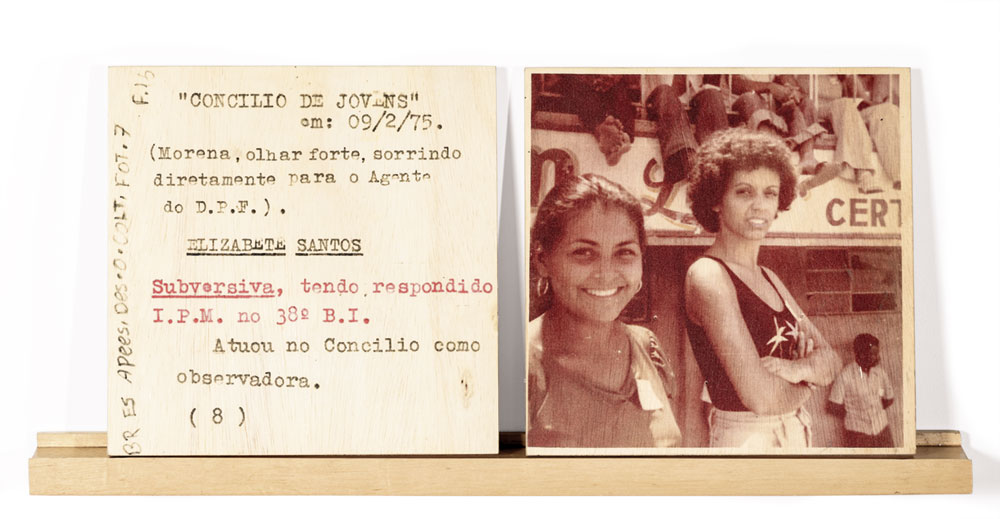 "CONCILIO DE JOVENS"
em: 09/2/75.
(Morena, olhar forte, sorrindo
diretamente para o Agente
do D.P.F.).
ELIZABETE SANTOS
Subversiva, tendo respondido
I.P.M. no 38º B.I.
Atuou no Concilio como
observadora.
(8)
BR ES APEES. DES.0.COLT. FOT. 7 F.16
CERT